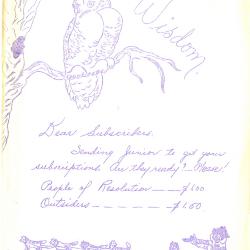 Wisdom
Dear Subscribers.
Sending Junior to get your
subscriptions. Are they ready?
People of Resolution — — — $1.00
Outsiders — — — — — $1.50